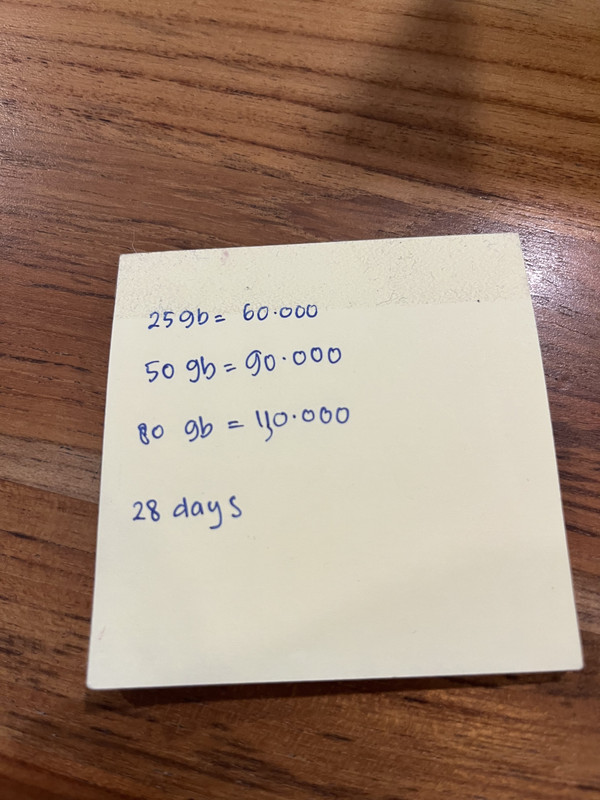 25gb = 60.000
50 gb = 90.000
80 gb = 110.000
28 days